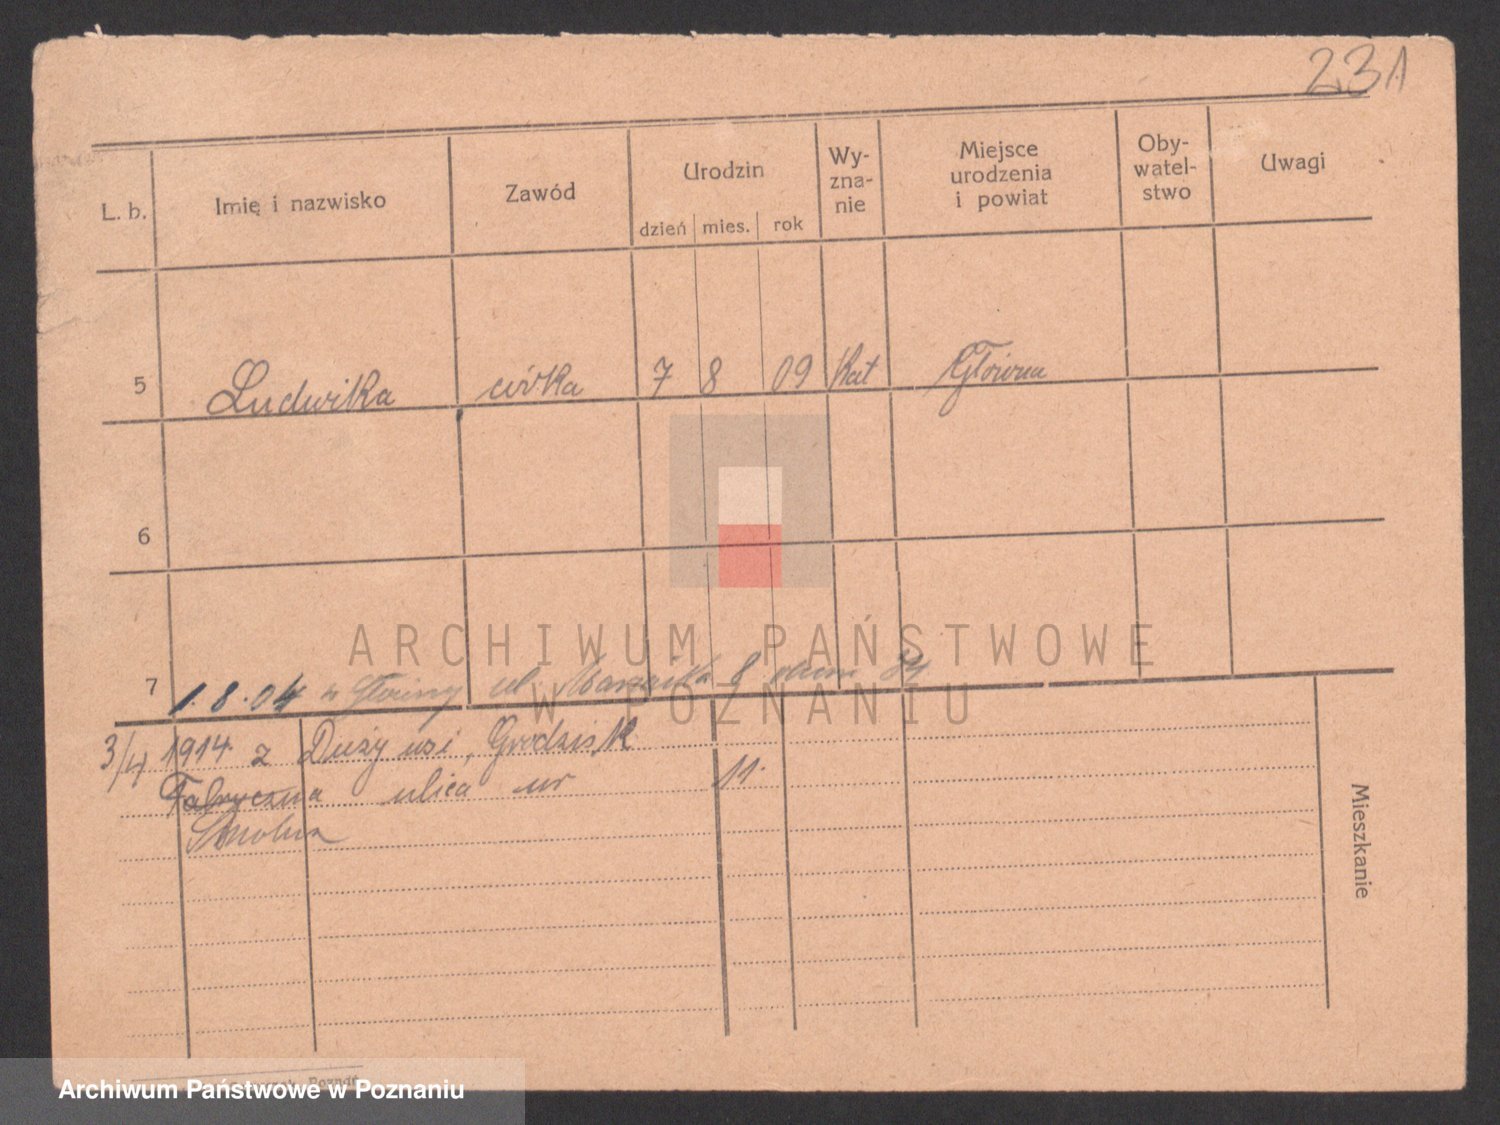 231
L. b. Imię i nazwisko Zawód Urodzin Wy-zna-nie Miejsce urodzenia i powiat Oby-watel-stwo Uwagi
dzień mies. rok
5 Ludwika córka 7 8 09 Kat Główna
6
ARCHIWUM PAŃSTWOWE
7 1.8.04 w Główny ul. 8
W POZNANIU
3/4 1914 z Duży wsi, Grodzisk
Fabryczna ulica nr 11.
Smolna
Mieszkanie
Archiwum Państwowe w Poznaniu